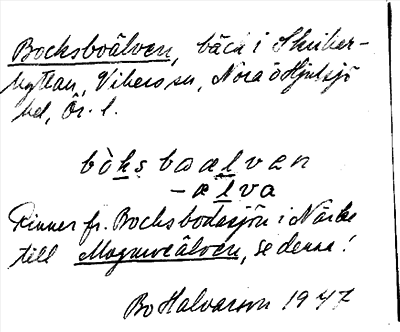 Bocksboälven, bäck i Skriker-
hyttan, Vikers sn, Nora o Hjulsjö
bel, Ör. l.
bòks boælvan
– ælva
Rinner fr. Bocksbodasjön i Närke
till Mogruveälven, se denna!
Bo Halvarson 1947